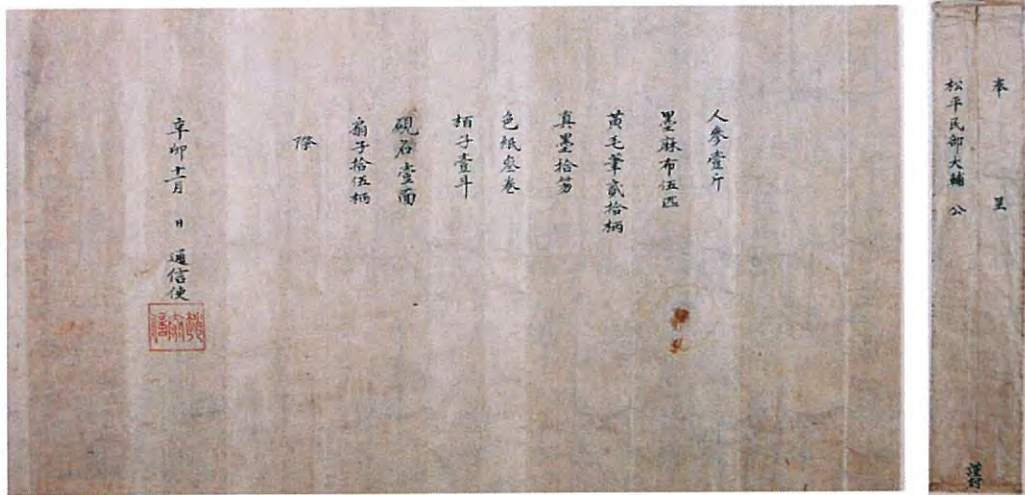 奉呈
松平民部大輔 公
謹封
人參壹斤
黑麻布伍匹
黄毛筆貳拾柄
真墨拾笏
色紙叄卷
栢子壹斗
硯石壹面
扇子拾伍柄
際
辛卯十一月 日 通信使